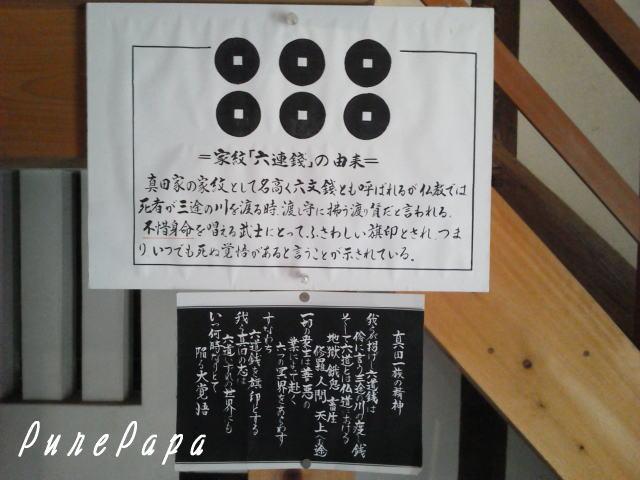 =家紋「六連銭」の由来=
真田家の家紋として名高く六文銭とも呼ばれるが仏教では
死者が三途の川を渡る時、渡し守に払う渡り賃だと言われる。
不惜身命を唱える武士にとって、ふさわしい旗印とされ、つま
り、いつでも死ぬ覚悟があると言うことが示されている。
真田一族の精神
我らが掲げし六連銭は
俗に言う三途の川の渡し銭
そして六道とは仏道における
地獄 餓鬼 畜生
修羅 人間 天上の六途
一切の衆生は善悪の
業により赴く
六つの冥界をあらわす
すなわち
六道銭を旗印とする
我ら真田の志は
六道いずれの世界にも
いつ何時なりとて
陥る大覚悟
PurePapa